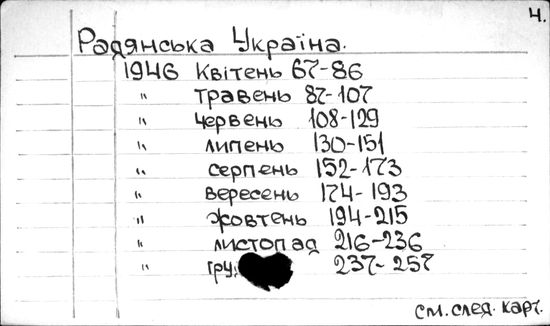 4.
Радянська Україна.
1946 Квітень 67-86
" травень 87-107
" червень 108-129
" липень 130-151
" серпень 152-173
" вересень 174-193
" жовтень 194-215
" листопад 216-236
" 237-257
см. след. карт.